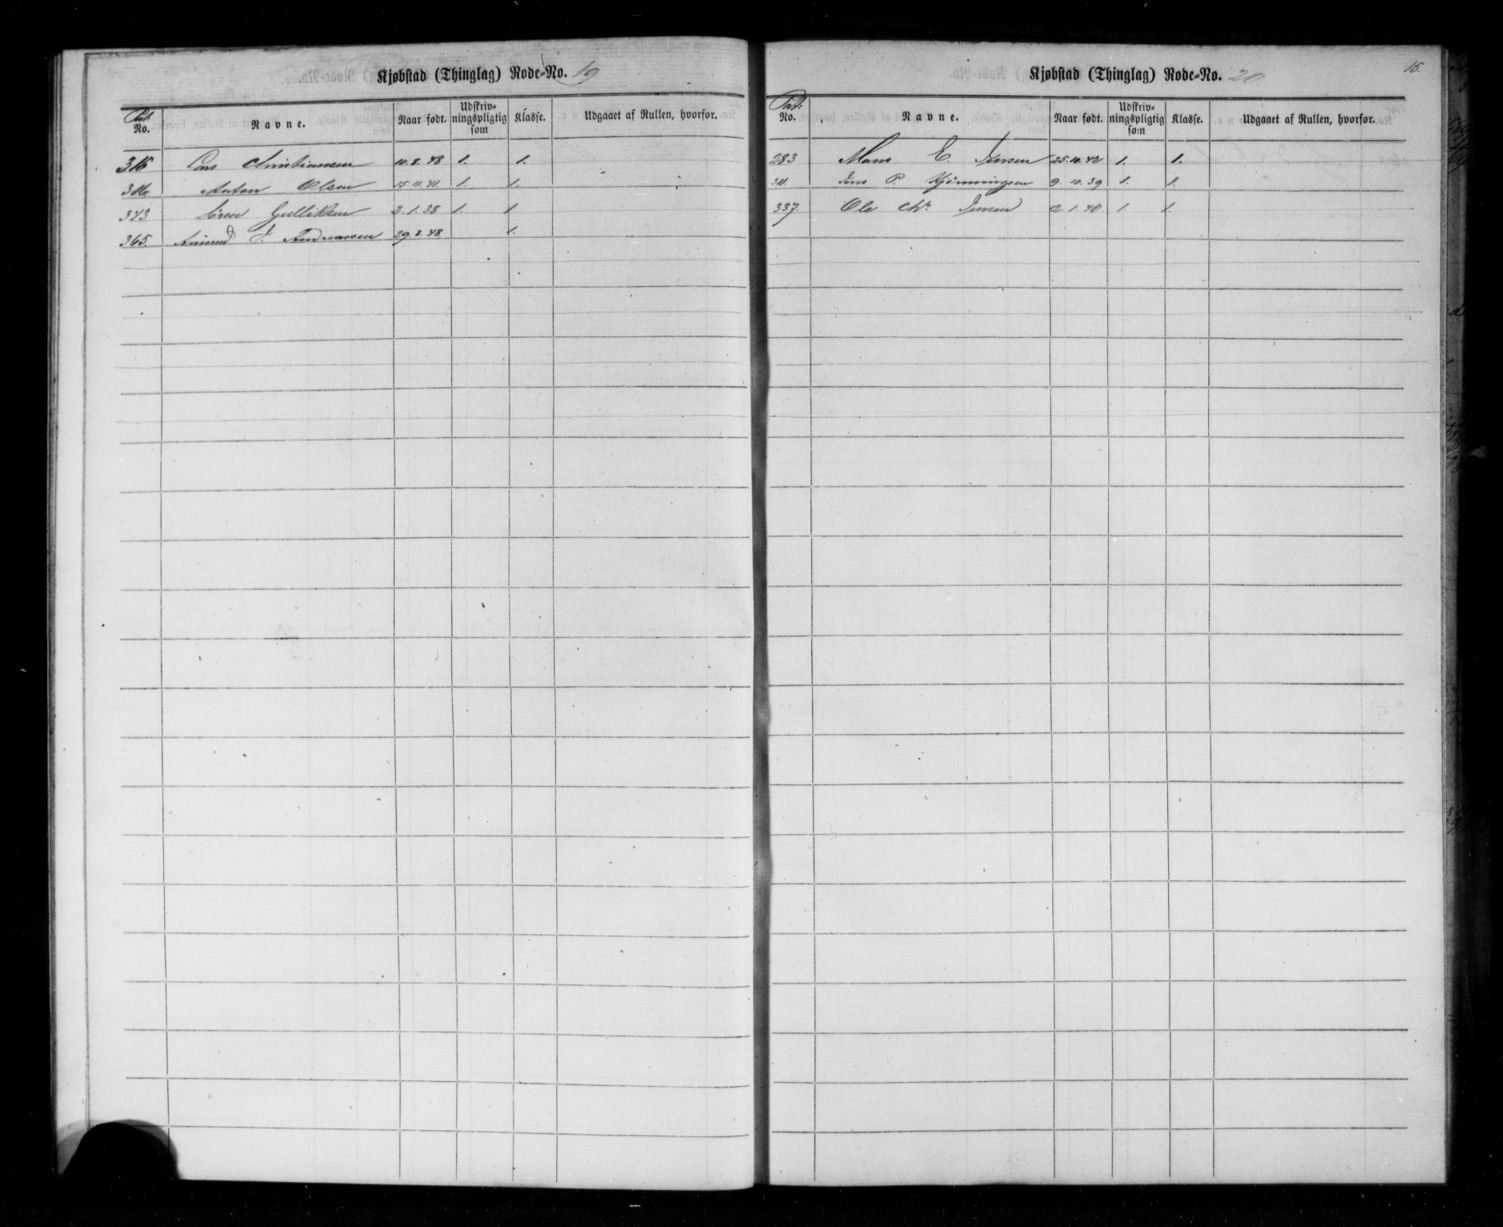 Kjøbstad (Thinglag) Rode-No. 19
Pat. No. Navne. Naar født. Udskrivningspligtig som Klasse. Udgaaet af Rullen, hvorfor.
315 Lars Christiansen 10.8.48 1. 1.
316 Anton Olsen 15.11.41. 1. 1.
343 Søren Gulliksen 2.1.38 1. 1
365. J. Andreassen 29.8.48 1.
Kjøbstad (Thinglag) Rode-No. 20
15.
Pat. No. Navne. Naar født. Udskrivningspligtig som Klasse. Udgaaet af Rullen, hvorfor.
283 Hans E. Jensen 25.10.42 1. 1.
311. Jens P. Hjemmingsen 9.10.39 1. 1.
337 Ole Chr. Jensen 12.1.40 1. 1.